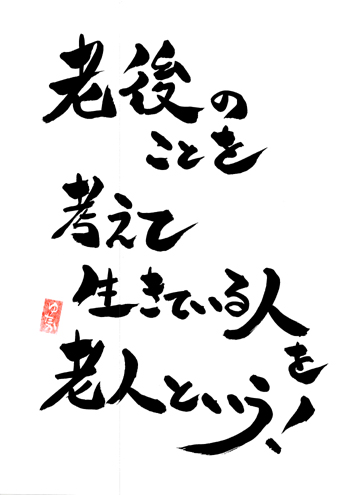 老後の
ことを
考えて
生きている人
を
老人という!